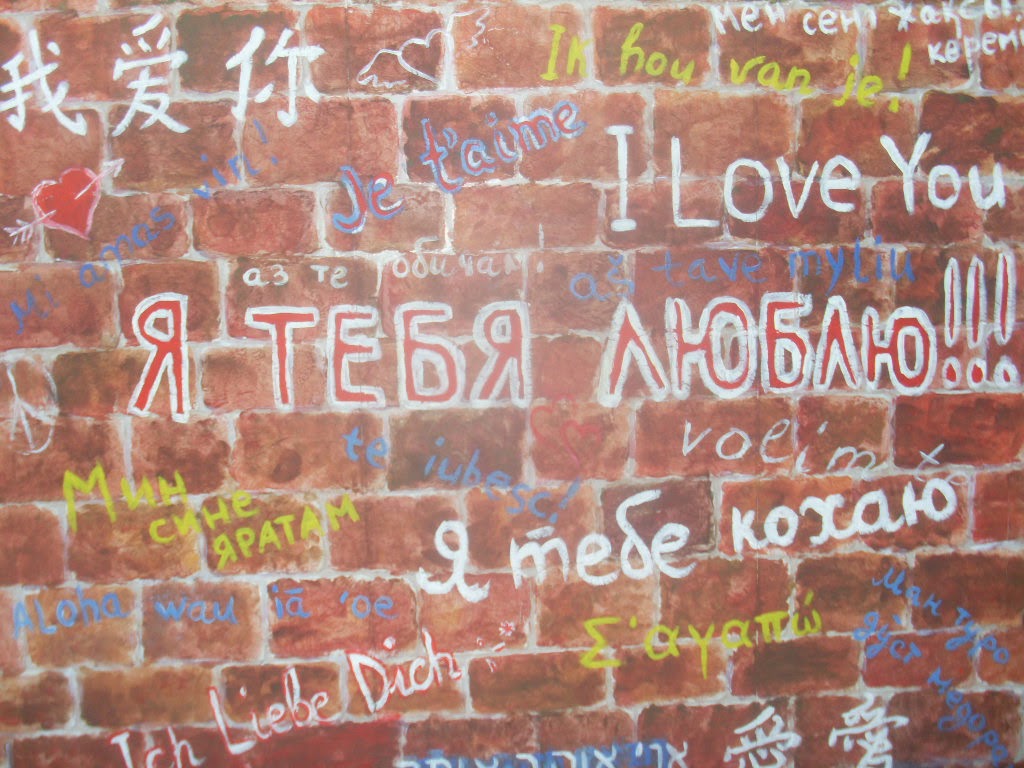 мен сені жақсы
көремі
Ik hou van je!
我爱你
Je t'aime
I Love You
Mi amas vin!
аз те обичам
aš tave myliu
Я ТЕБЯ ЛЮБЛЮ!!!
te iubesc!
volim
Мин
сине
ЯРАТАМ
Я тебе кохаю
Aloha wau iā 'oe
Σ'αγαπώ
ман туро
дӯст медора
Ich Liebe Dich
愛